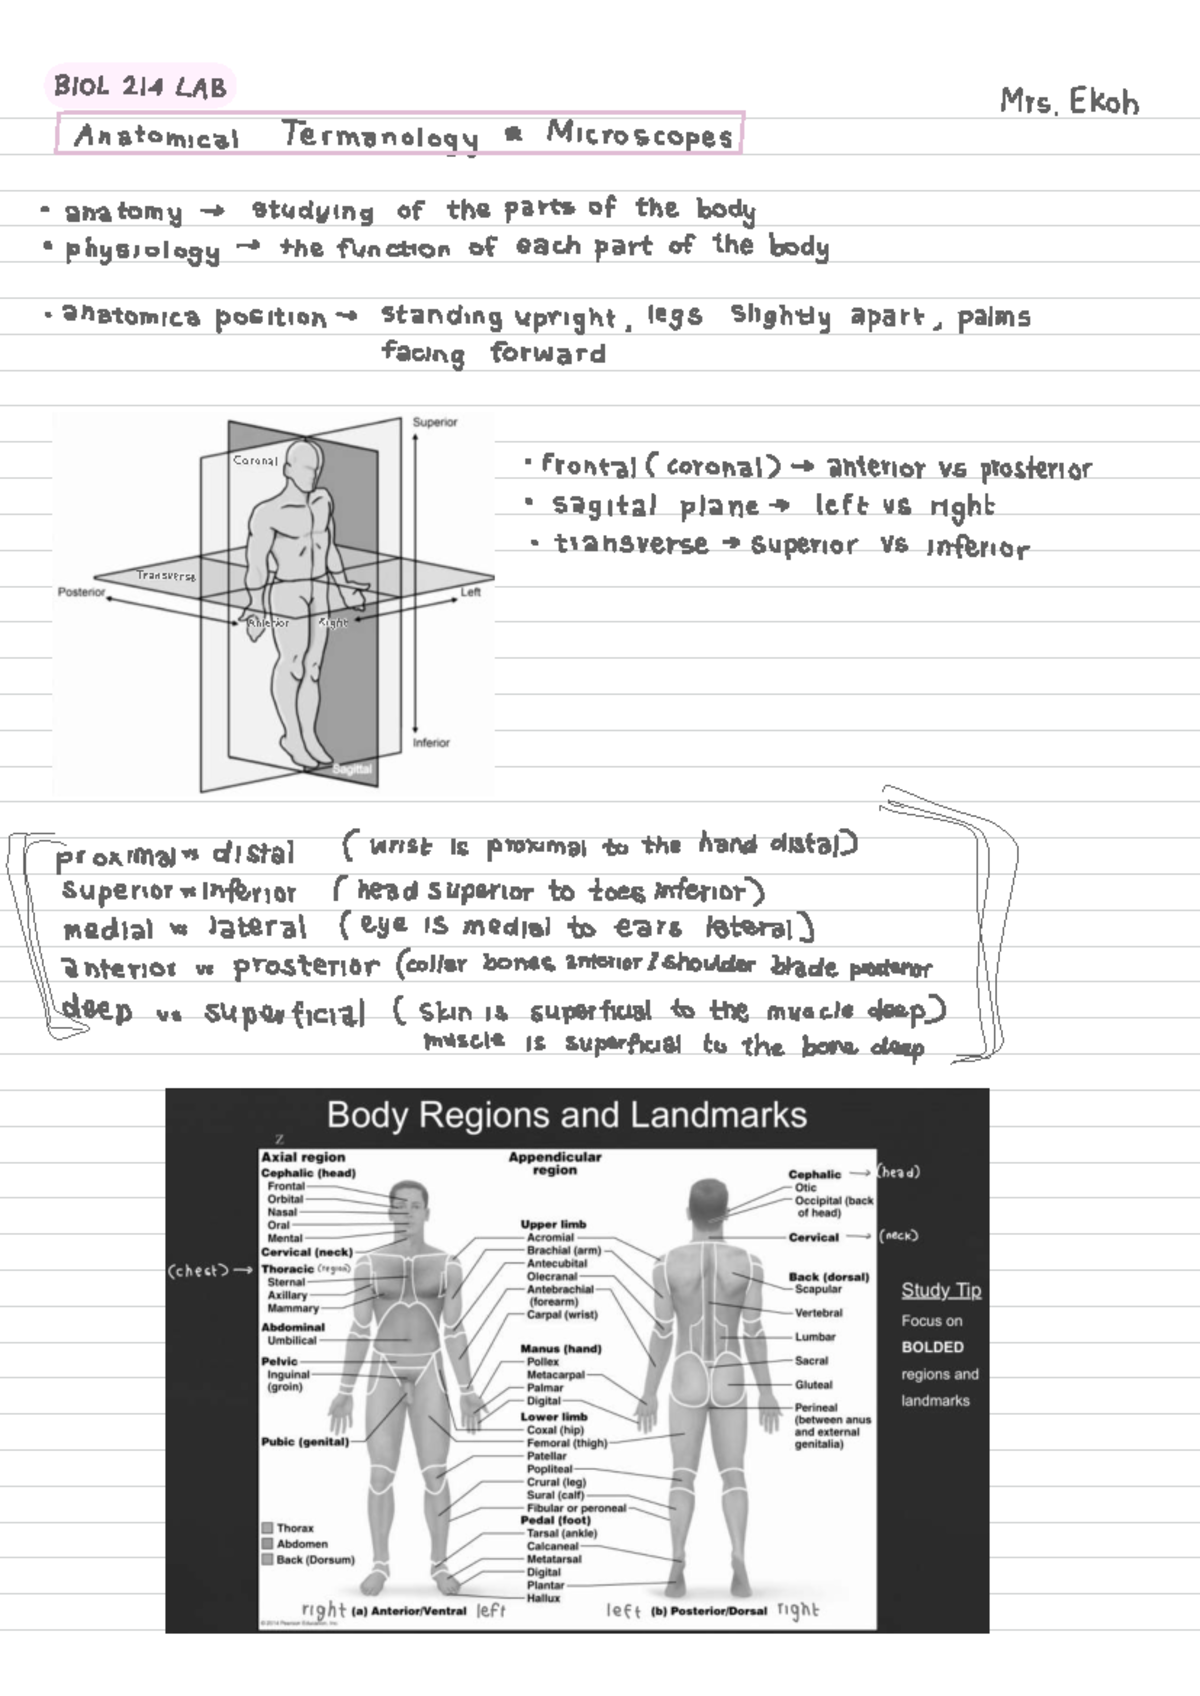 BIOL 214 LAB
Mrs. Ekoh
Anatomical Termanology * Microscopes
• anatomy → studying of the parts of the body
• physiology → the function of each part of the body
• anatomica position → standing upright, legs slightly apart, palms
facing forward
Superior
Coronal
Transverse
Posterior
Left
Anterior
Right
Inferior
Sagittal
• frontal (coronal) → anterior vs prosterior
• sagital plane → left vs right
• transverse → superior vs inferior
proximal vs distal (wrist is proximal to the hand distal)
superior vs inferior (head superior to toes inferior)
medial vs lateral (eye is medial to ears lateral)
anterior vs prosterior (collar bones anterior / shoulder blade posterior
deep vs superficial (skin is superficial to the muscle deep)
muscle is superficial to the bone deep
Body Regions and Landmarks
Z
Axial region
Cephalic (head)
Frontal
Orbital
Nasal
Oral
Mental
Cervical (neck)
(chest) → Thoracic (region)
Sternal
Axillary
Mammary
Abdominal
Umbilical
Pelvic
Inguinal
(groin)
Pubic (genital)
Thorax
Abdomen
Back (Dorsum)
Appendicular
region
Upper limb
Acromial
Brachial (arm)
Antecubital
Olecranal
Antebrachial
(forearm)
Carpal (wrist)
Manus (hand)
Pollex
Metacarpal
Palmar
Digital
Lower limb
Coxal (hip)
Femoral (thigh)
Patellar
Popliteal
Crural (leg)
Sural (calf)
Fibular or peroneal
Pedal (foot)
Tarsal (ankle)
Calcaneal
Metatarsal
Digital
Plantar
Hallux
Cephalic → (head)
Otic
Occipital (back
of head)
Cervical → (neck)
Back (dorsal)
Scapular
Vertebral
Lumbar
Sacral
Gluteal
Perineal
(between anus
and external
genitalia)
Study Tip
Focus on
BOLDED
regions and
landmarks
right (a) Anterior/Ventral left
left (b) Posterior/Dorsal right
© 2014 Pearson Education, Inc.